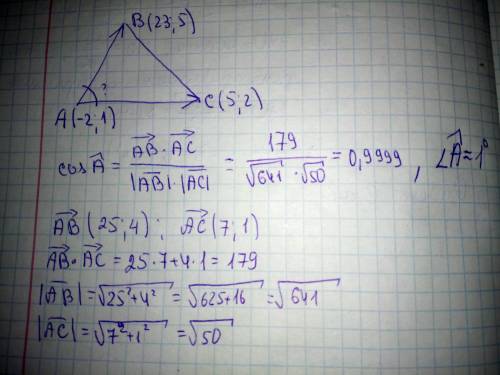 B(23;5)
?
A(-2;1)
C(5;2)
cos Â = (AB⃗ · AC⃗)/(|AB⃗| · |AC⃗|) = 179/(√641 · √50) = 0,9999 , ∠Â ≈ 1°
AB⃗ (25;4); AC⃗ (7;1)
AB⃗ · AC⃗ = 25·7+4·1 = 179
|AB⃗| = √(25²+4²) = √(625+16) = √641
|AC⃗| = √(7²+1²) = √50